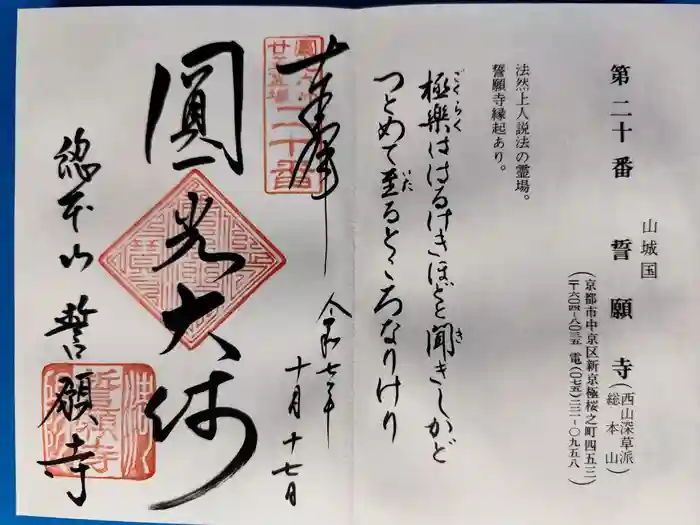 第二十番 山城国 誓願寺(西山深草派総本山)
(京都市中京区新京極桜之町四五三
〒六〇四-八〇三五 電(〇七五)二二一-〇九五八)
法然上人説法の霊場。
誓願寺縁起あり。
極楽ははるけきほどと聞きしかど
ごくらく き
つとめて至るところなりけり
いた
奉拝
二十番
令和七年
十月十七日
圓光大師
総本山 誓願寺
誓願寺